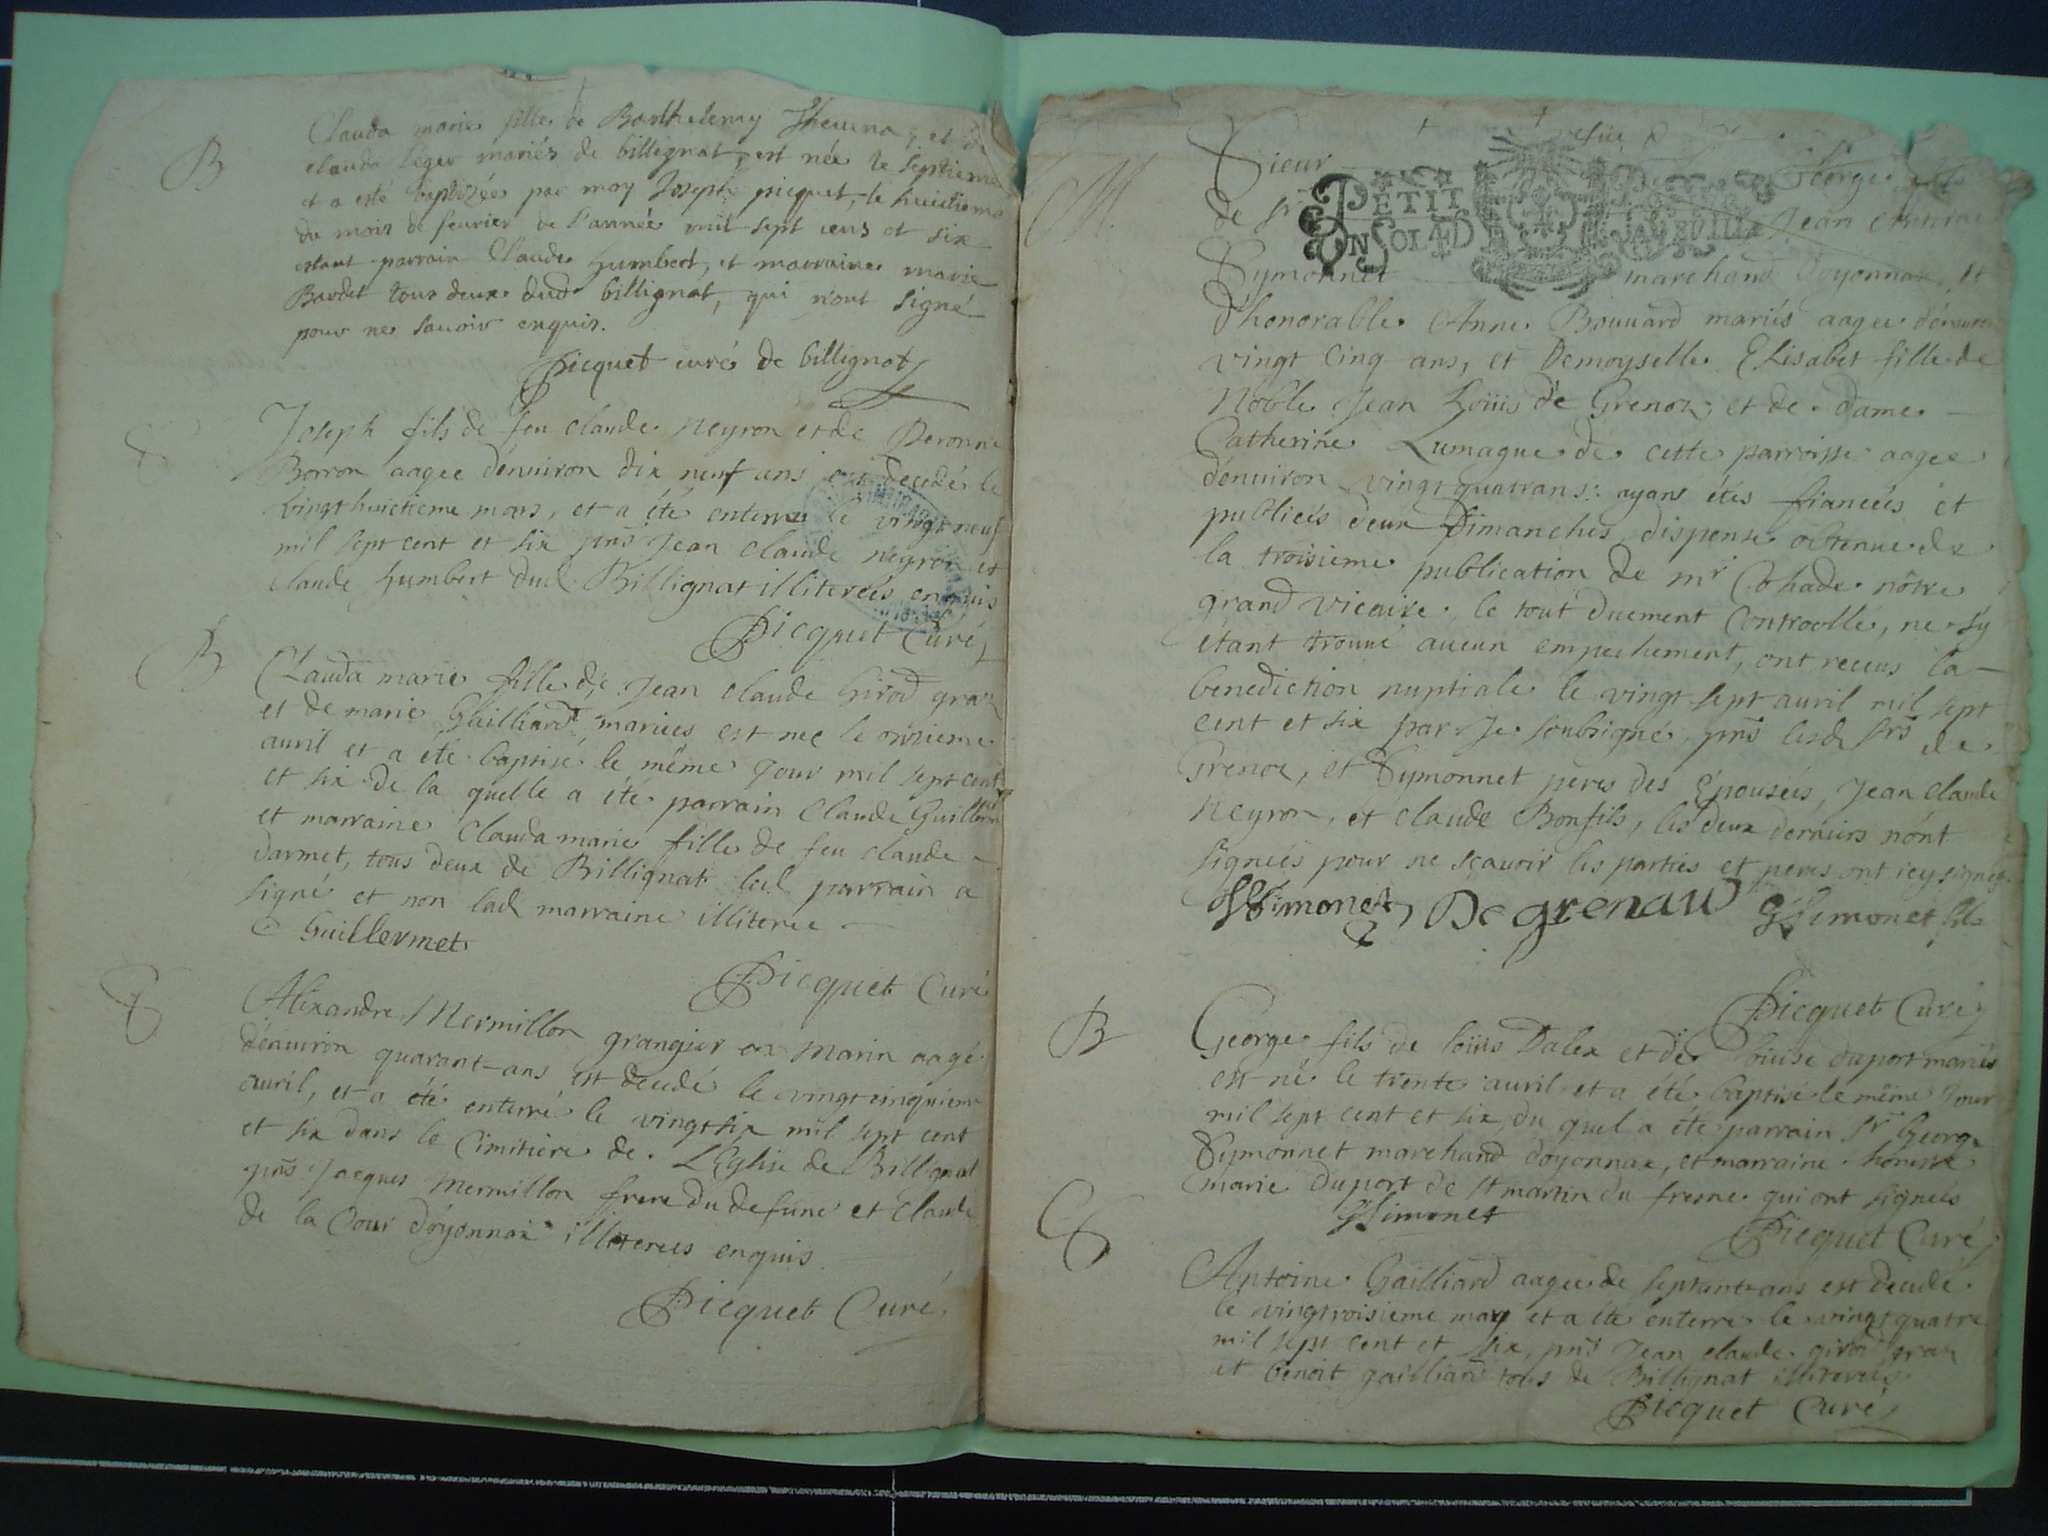 B
Clauda marie fille de Barthelemy Thevena, et de
clauda Leger mariés de billignat, est née le septieme
et a esté baptizée par moy Joseph picquet, le huictieme
du mois de feurier de l'année mil sept cens et six
estant parrain Claude humbert, et marraine marie
Bardet tous deux dud billignat, qui n'ont signé
pour ne sauoir enquis.
Picquet curé de billignat
Joseph fils de feu claude neyron et de Peronne
Borron aagee d'enuiron dix neuf ans est decedé le
vingt huictieme mars, et a été enterre le vingt neuf
mil sept cent et six pns Jean claude neyron et
claude humbert dud Billignat illiterés enquis
Picquet Curé
B
Clauda marie fille de Jean claude Girod gran
et de marie Gailliard mariees est nee le onzieme
auril et a été baptisé le même Jour mil sept cent
et six de la quelle a été parrain Claude Guillermet
et marraine Clauda marie fille de feu claude
Darmet, tous deux de Billignat led parrain a
signé et non lad marraine illiteree
C Guillermet
Picquet Curé
Alixandre Mermillon grangier en Marin aagé
d'enuiron quarant-ans est decedé le vingt cinquieme
auril, et a été enterré le vingt six mil sept cent
et six dans le Cimitiere de L'Eglise de Billignat
pns Jacques Mermillon frere du defunc et Claude
de la Cour d'oyonnax illiterees enquis
Picquet Curé
M.
Sieur George fils
PETIT
de sr Jean Antoine
EN SOL AED
Symonnet marchand d'oyonnax, et
d'honorable Anne Bouuard mariés aagee d'enuiron
vingt cinq ans, et Demoyselle Elisabet fille de
Noble Jean Louis de Grenor, et de dame
Catherine Lumague de cette parroisse aagee
d'enuiron vingt quatrans: ayans étés fianceés et
publieés deux Dimanches, dispense obtenue de
la troisieme publication de mr Cohade nôtre
grand vicaire, le tout duement Controollé, ne s'y
étant trouué aucun empechement, ont receus la
benediction nuptiale le vingt sept auril mil sept
cent et six par Je soubsigné, pns lesd srs de
Grenor, et Symonnet peres des Epouseés, Jean claude
Neyron, et claude Bonfils, les deux derniers n'ont
signeés pour ne sçauoir les parties et peres ont icy signés
Simonet De grenaud G Simonet fils
Picquet Curé
B
George fils de louis Dalex et de louise duport mariés
est né le trente auril et a été baptisé le même Jour
mil sept cent et six, du quel a éte parrain sr George
Symonnet marchand d'oyonnax, et marraine honeste
marie duport de st martin du fresne qui ont signeés
G Simonet
Picquet Curé
Antoine Gailliard aagee de septante ans est decedé
le vingtroisieme may et a ete enterre le vingt quatre
mil sept cent et six, pns Jean claude girod gran
et benoit gailliard tous de Billignat illiterees
Picquet Curé